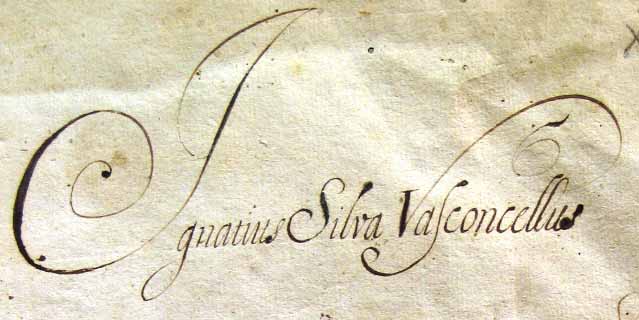 Ignatius Silva Vaſconcellus